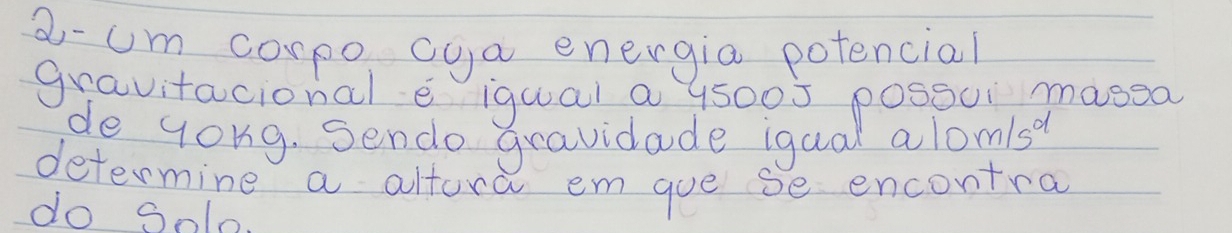 2- um corpo cuja energia potencial
gravitacional é igual a 4500J possui massa
de 40kg. Sendo gravidade igual a 10m/s²
determine a altura em que se encontra
do solo.